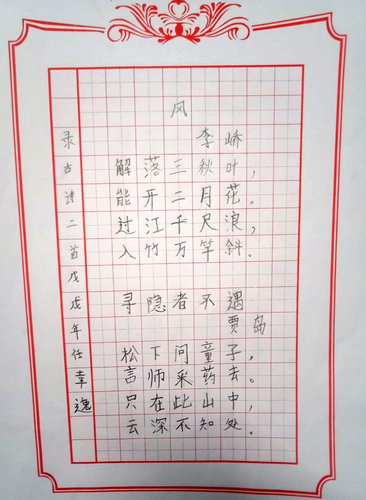 风
李峤
解落三秋叶，
能开二月花。
过江千尺浪，
入竹万竿斜。
寻隐者不遇
贾岛
松下问童子，
言师采药去。
只在此山中，
云深不知处。
录古诗二首戊戌年任幸逸